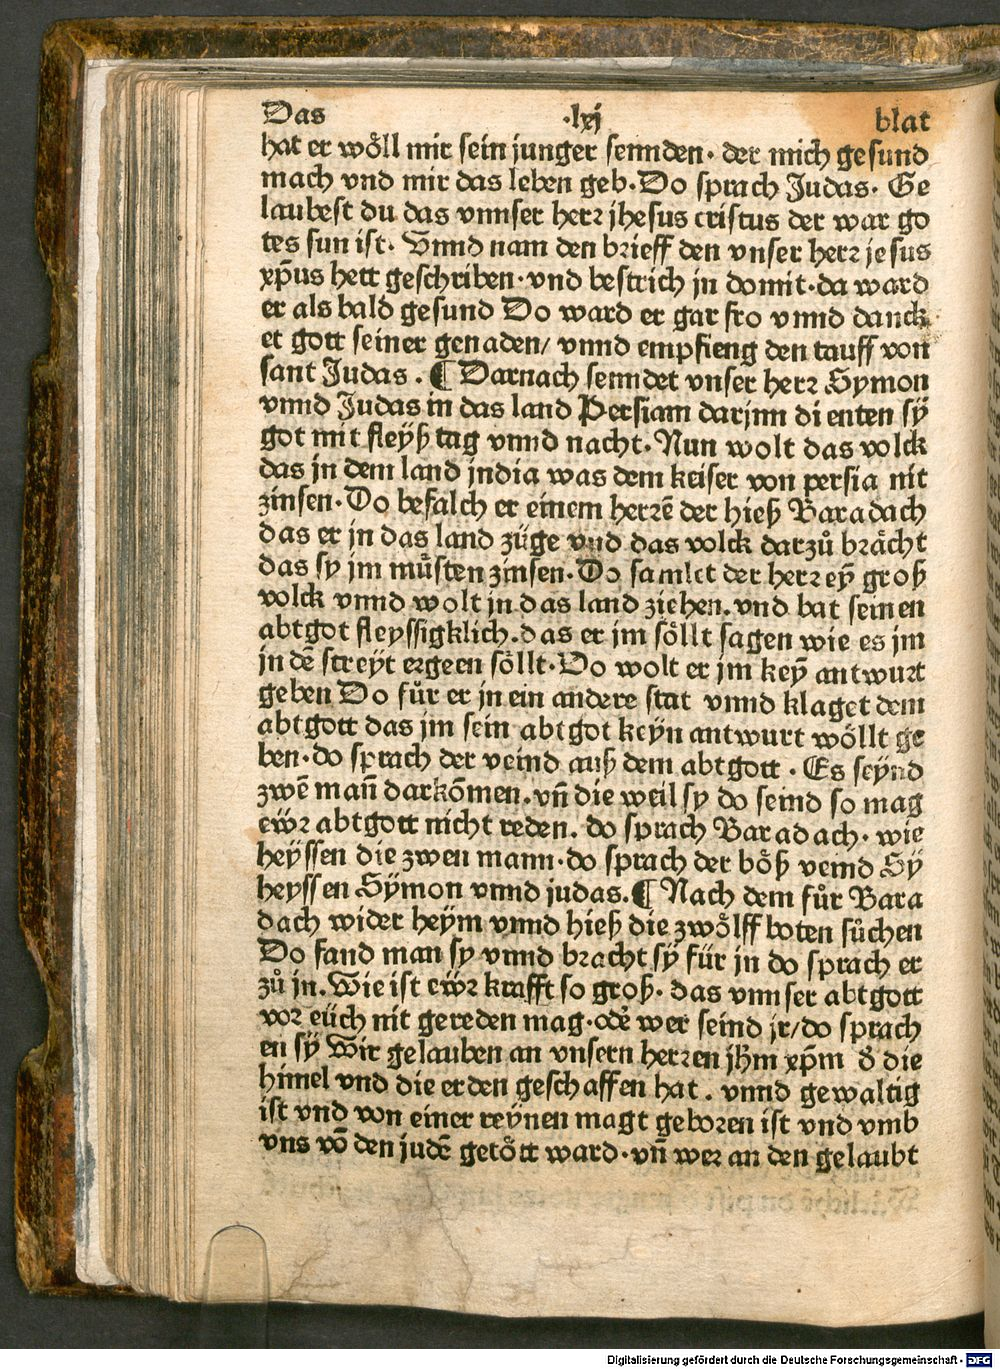 Das .lxj blat
hat er wöll mir sein junger sennden. der mich gesund
mach vnd mir das leben geb. Do sprach Judas. Ge
laubest du das vnnser herr jhesus cristus der war go
tes sun ist. Vnnd nam den brieff den vnser herr jesus
xp̄us hett geschriben. vnd bestrich jn domit. da ward
er als bald gesund Do ward er gar fro vnnd danck
et gott seiner genaden/ vnnd empfieng den tauff von
sant Judas. ¶ Darnach senndet vnser herr Symon
vnnd Judas in das land Persiam darjnn dienten sÿ
got mit fleÿß tag vnnd nacht. Nun wolt das volck
das jn dem land jndia was dem keiser von persia nit
zinsen. Do befalch er einem herrē der hieß Baradach
das er jn das land züge vnd das volck darzů brächt
das sy jm müsten zinsen. Do samlet der herr eÿ̄ groß
volck vnnd wolt jn das land ziehen. vnd bat seinen
abtgot fleyssigklich. das er jm söllt sagen wie es jm
jn dē streÿt ergeen söllt. Do wolt er jm keÿ̄ antwurt
geben Do fůr er jn ein andere stat vnnd klaget dem
abtgott das jm sein abtgot keÿn antwurt wöllt ge
ben. do sprach der veind auß dem abtgott. Es seÿnd
zwē man̄ darkōmen. vn̄ die weil sy do seind so mag
ewr abtgott nicht reden. do sprach Baradach. wie
heÿssen die zwen mann. do sprach der böß veind Sÿ
heyssen Sÿmon vnnd judas. ¶ Nach dem fůr Bara
dach wider heÿm vnnd hieß die zwölff boten sůchen
Do fand man sy vnnd bracht sÿ für jn do sprach er
zů jn. Wie ist ewr krafft so groß. das vnnser abtgott
vor eüch nit gereden mag. odẻ wer seind jr/ do sprach
en sÿ Wir gelauben an vnsern herren jh̄m xp̄m d̉ die
himel vnd die erden geschaffen hat. vnnd gewaltig
ist vnd von einer reÿnen magt geboren ist vnd vmb
vns vō den judē getött ward. vn̄ wer an den gelaubt
Digitalisierung gefördert durch die Deutsche Forschungsgemeinschaft - DFG